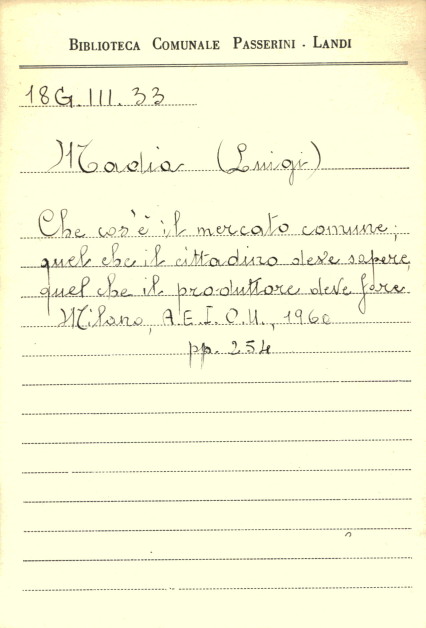 BIBLIOTECA COMUNALE PASSERINI - LANDI
18G.III.33
Madia (Luigi)
Che cos'è il mercato comune;
quel che il cittadino deve sapere,
quel che il produttore deve fare
Milano, A.E.I.O.U., 1960
pp. 254